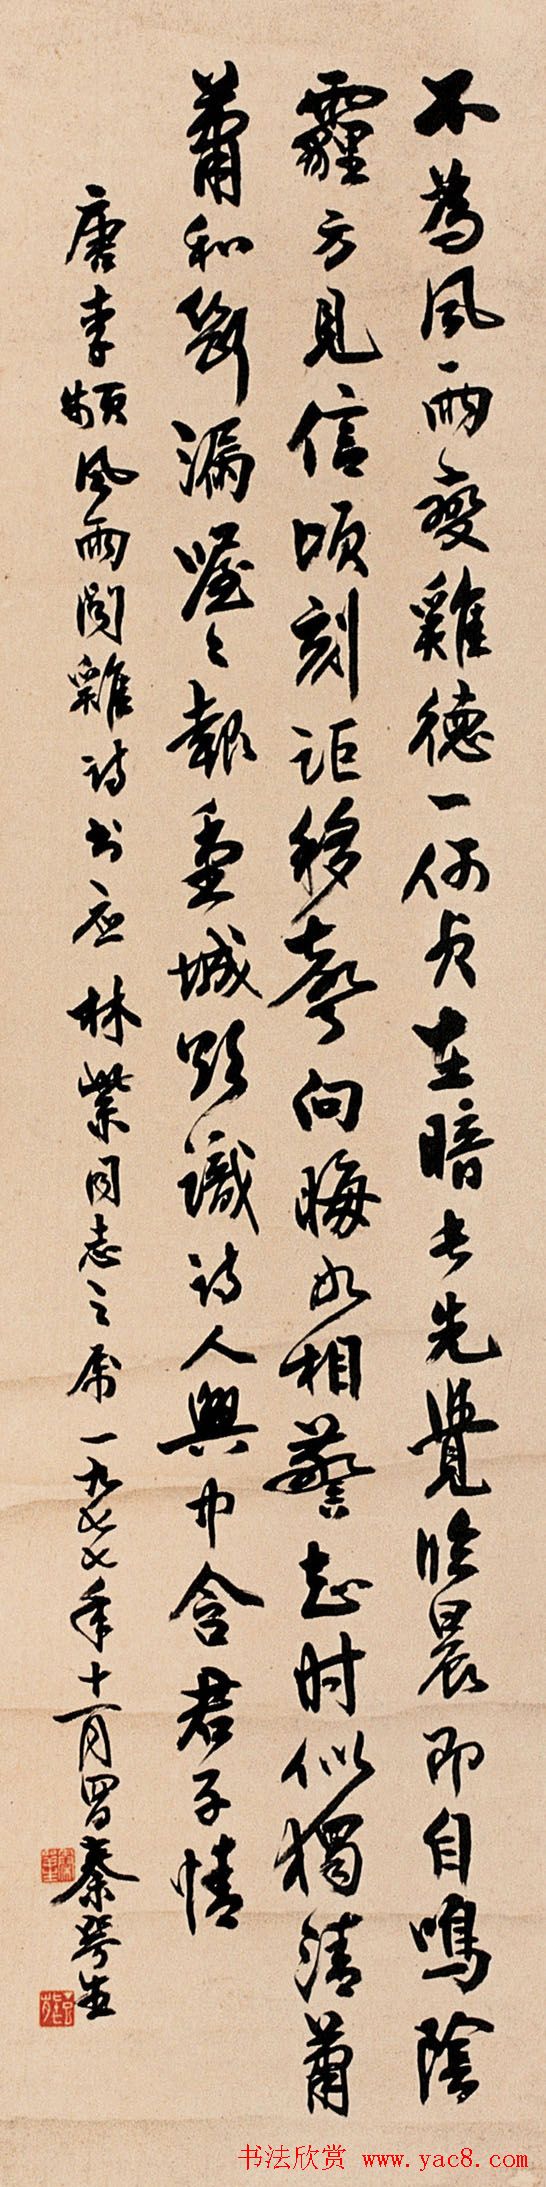 不為風雨變雞德一何貞在暗長先覺臨晨即自鳴陰
霾方見信頃刻詎移聲向晦如相警知时似獨清蕭
蕭和斷漏喔〻報重城欲識诗人興中含君子情
唐李頻風雨闻雞诗书应林紫同志之属一九七七年十一月四日秦咢生
书法欣赏 www.yac8.com